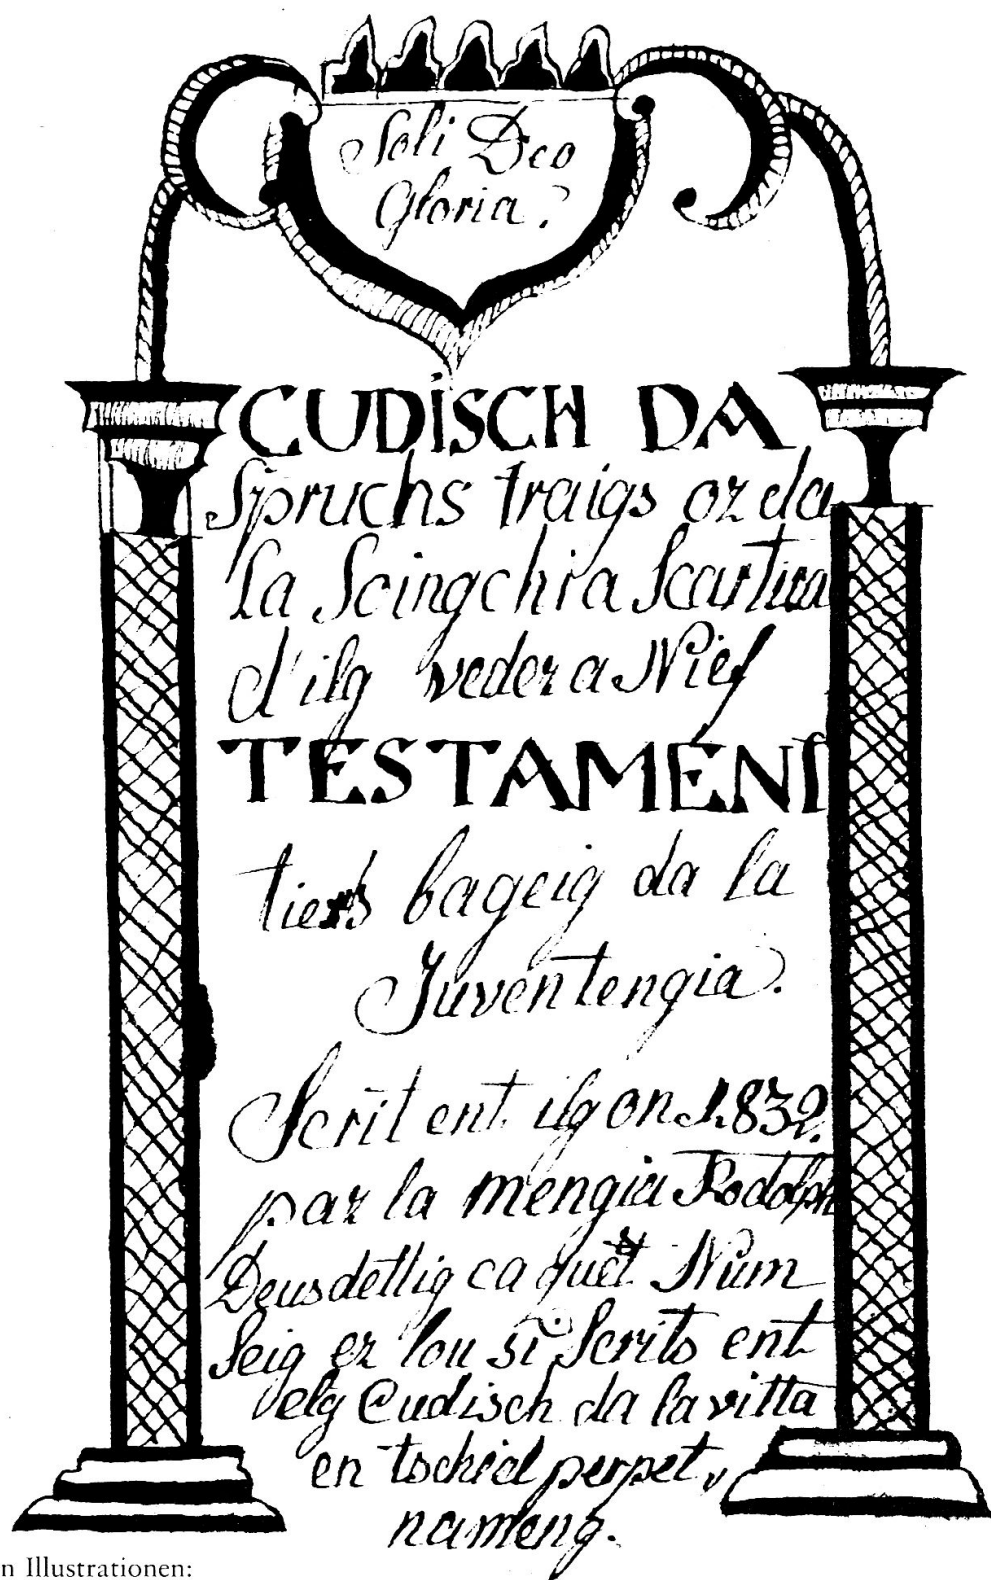 Soli Deo
Gloria.
CUDISCH DA
Spruchs traigs or da
la Soingchia Scartira
d'ilg veder a Nief
TESTAMENT
tiers bageig da la
Juventengia.
Scrit ent ilg on 1832.
par la mengia Rodolph
Deusdettlig ca quèt Num
Seig er lou si Scrits ent
elg Cudisch da la vitta
en tschiel perpet,
nameng.
n Illustrationen: